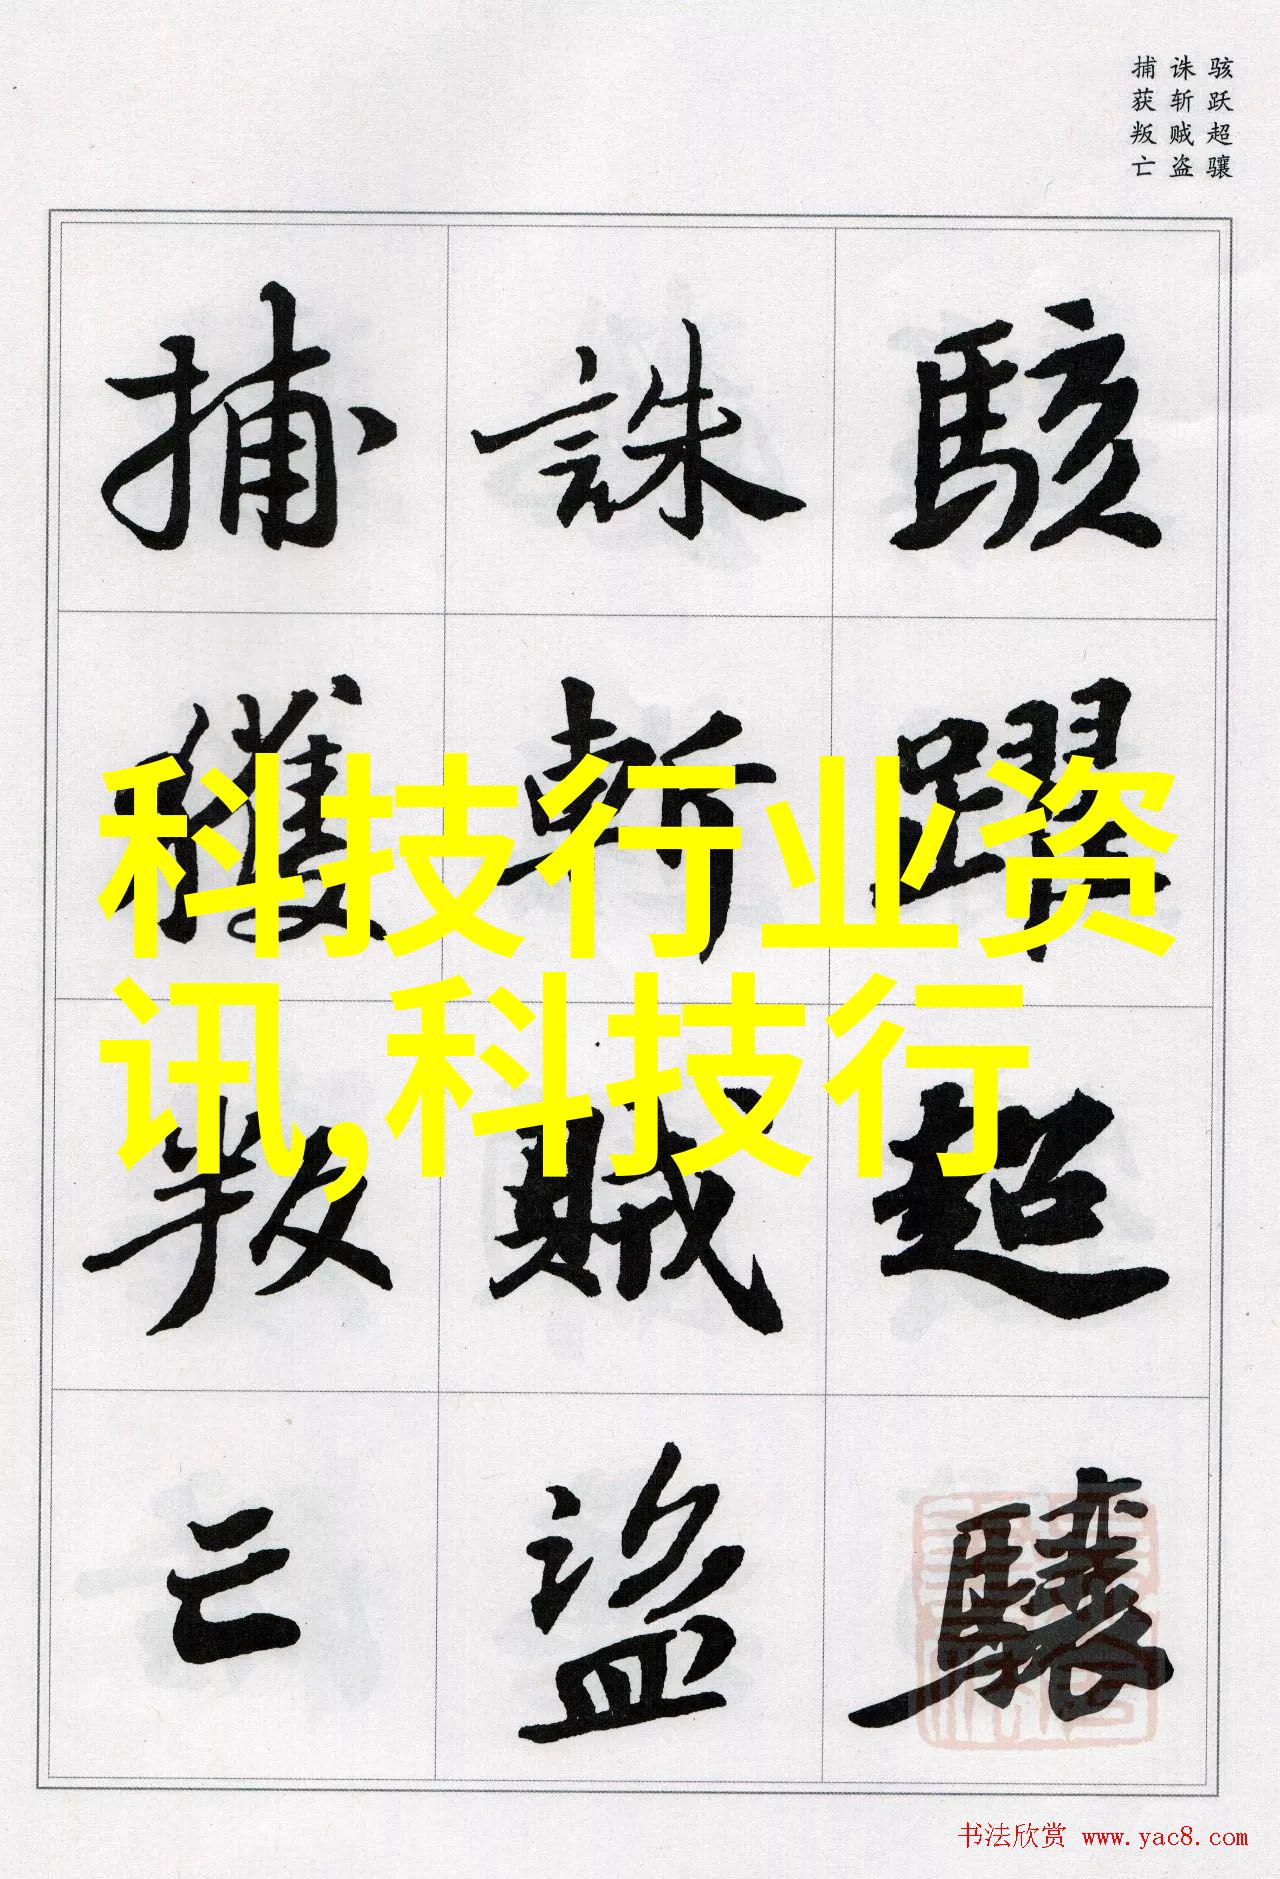 骇跃超骧
诛斩贼盗
捕获叛亡
駭躍超驤
誅斬賊盜
捕獲叛亡
科技行业资
讯,科技行
书法欣赏 www.yac8.com